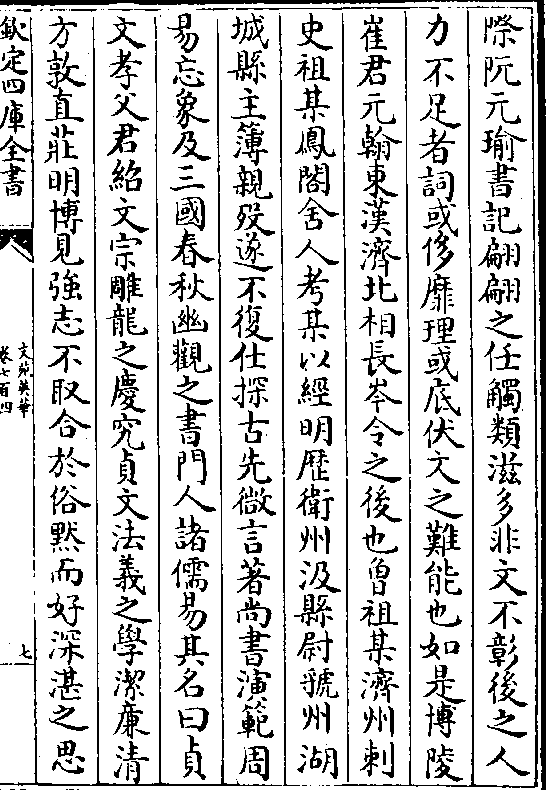 際阮元瑜書記翩翩之任觸類滋多非文不彰後之人
力不足者詞或侈靡理或底伏文之難能也如是博陵
崔君元翰東漢濟北相長岑令之後也曾祖某濟州刺
史祖某鳳閣舍人考某以經明歴衛州汲縣尉虢州湖
城縣主簿親殁遂不復仕探古先微言著尚書演範周
易忘象及三國春秋幽觀之書門人諸儒易其名曰貞
文孝父君紹文宗雕龍之慶究貞文法義之學潔廉清
方敦直莊明博見強志不取合於俗黙而好深湛之思
欽定四庫全書
文苑英華
卷七百四
七